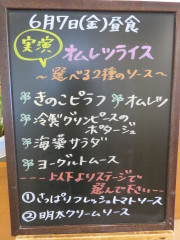 6月7日(金)昼食
実演
オムレツライス
～選べる2種のソース～
きのこピラフ オムレツ
冷製グリンピースの
ポタージュ
海藻サラダ
ヨーグルトムース
---上以下よりステージで
選んで下さい---
①さっぱりフレッシュトマトソース
②明太クリームソース